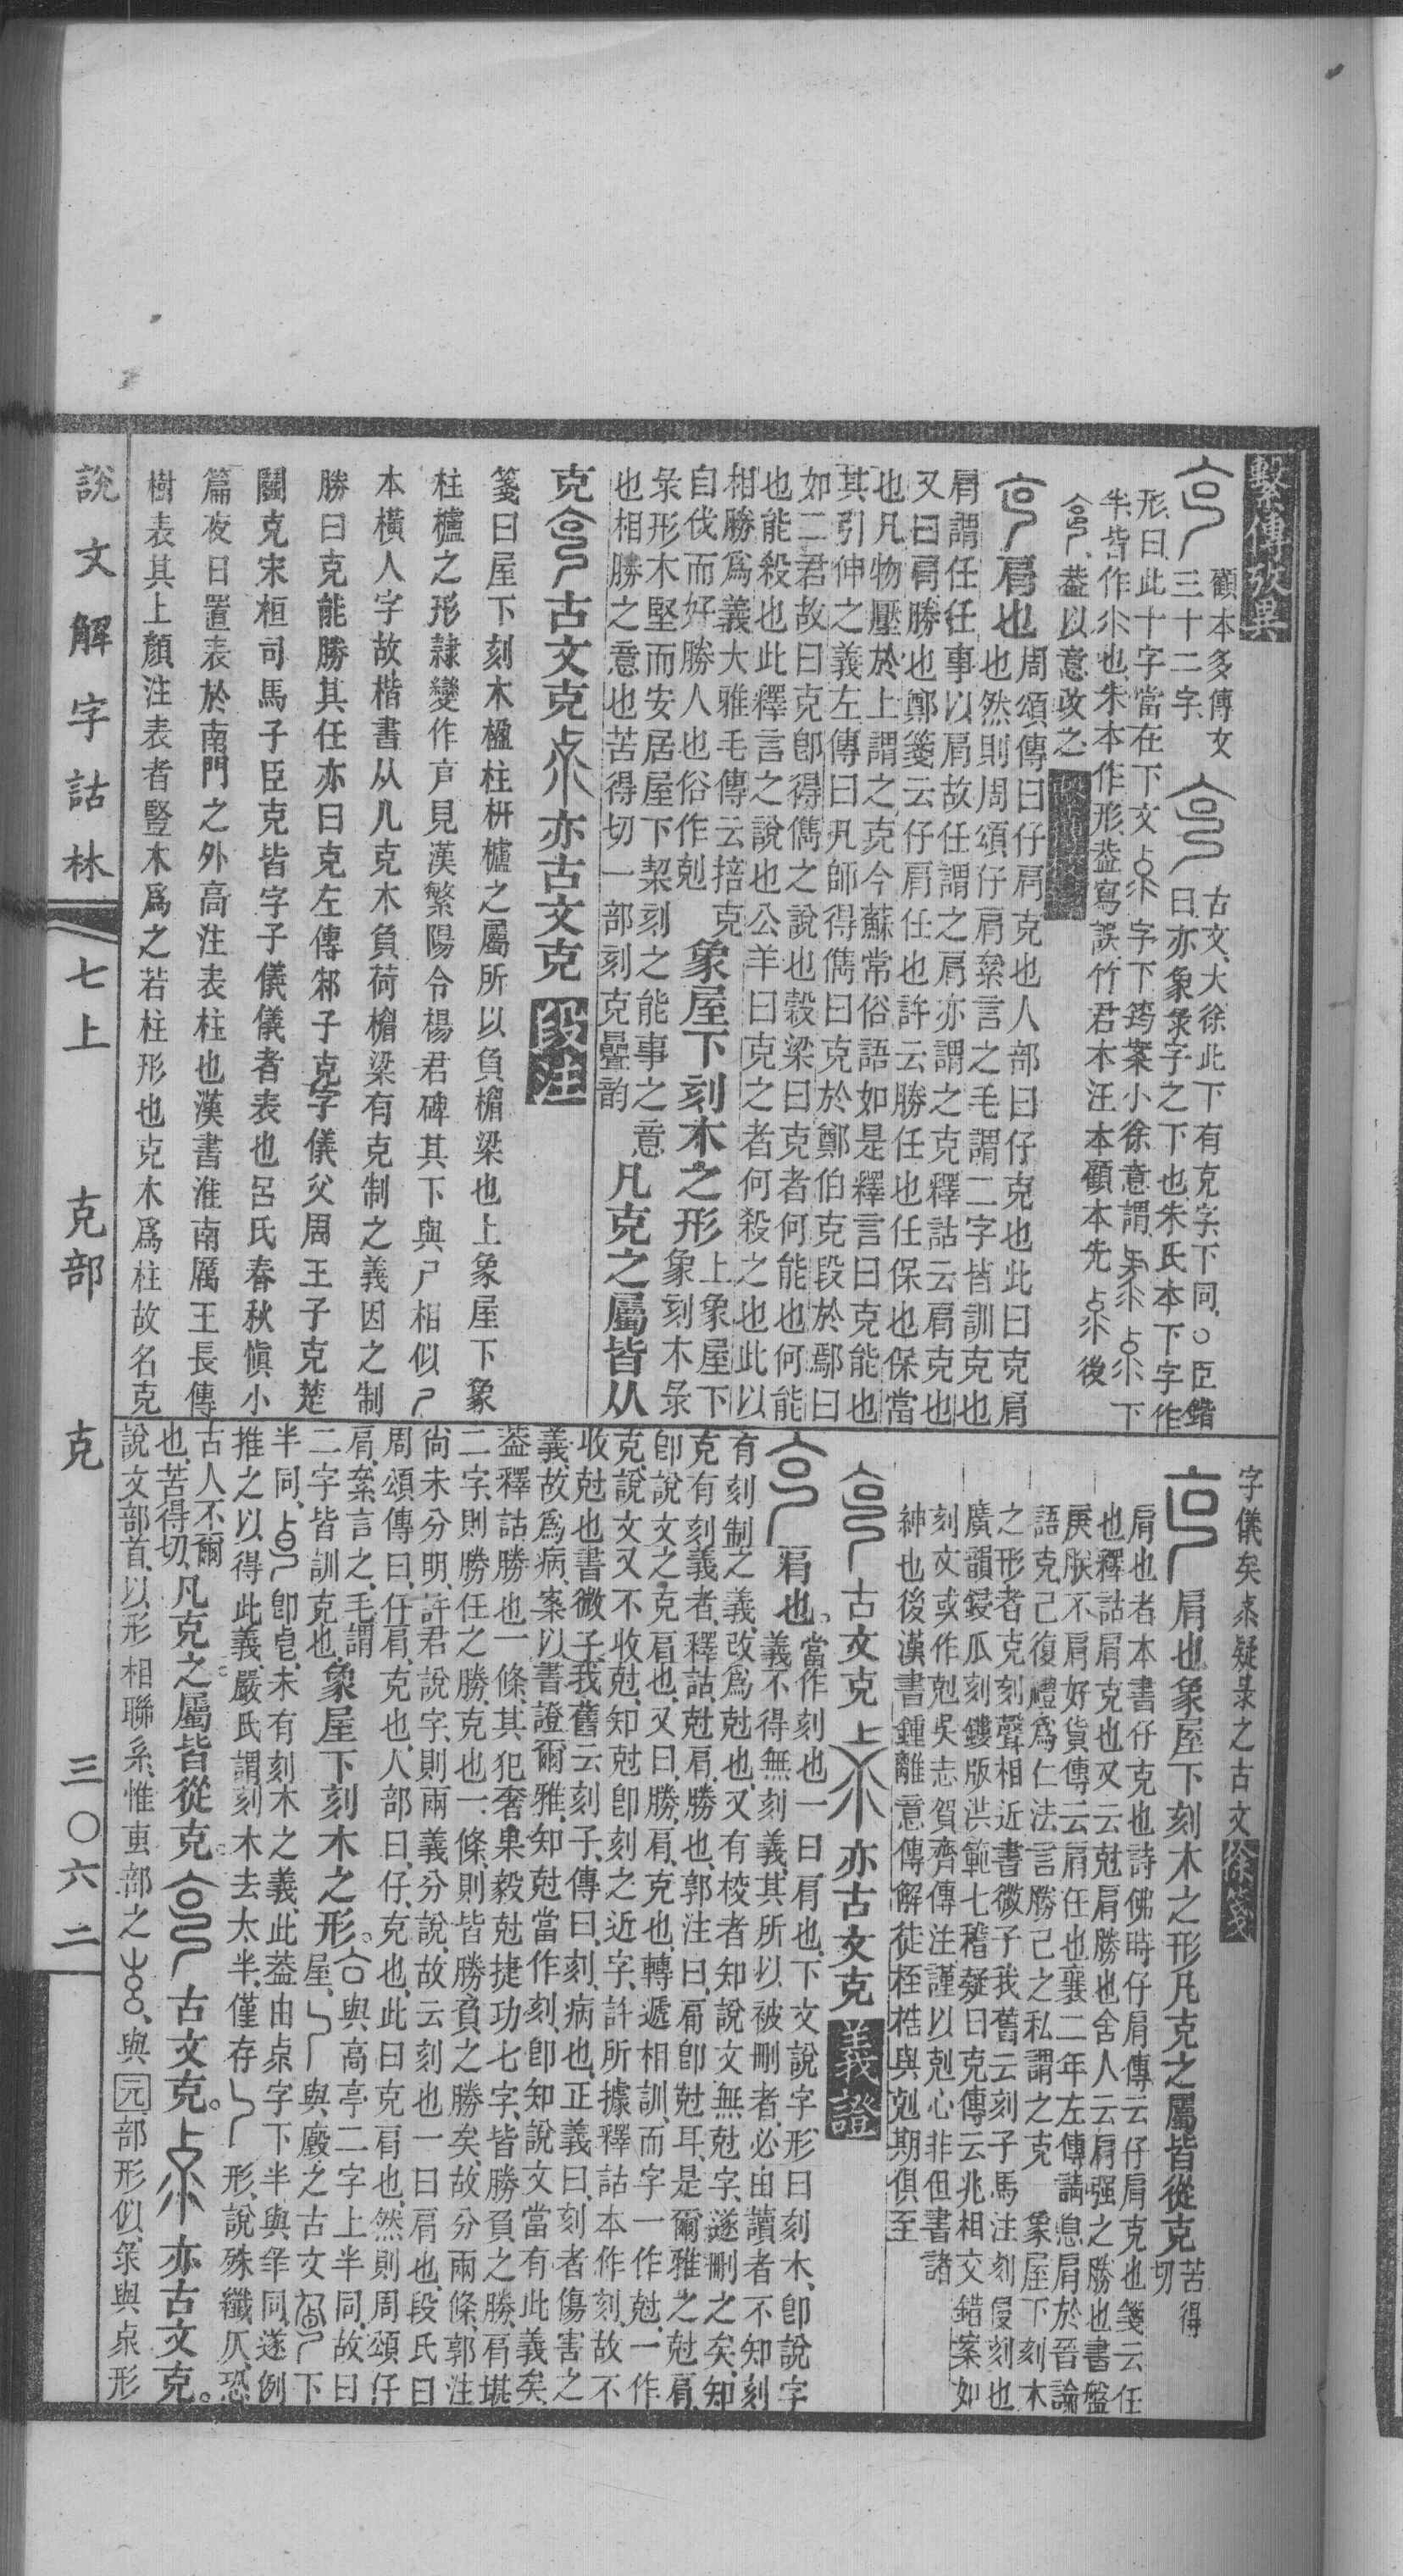 繫傳攷異
顧本多傳文三十二字
古文大徐此下有克字下同○臣鍇
曰亦象彔字之下也朱氏本下字作
形曰此十字當在下文字下筠案小徐意謂下
半皆作也朱本作形葢寫誤竹君本汪本顧本先後
葢以意改之
肩也
周頌傳曰仔肩克也人部曰仔克也此曰克肩
也然則周頌仔肩絫言之毛謂二字皆訓克也
肩謂任任事以肩故任謂之肩亦謂之克釋詁云肩克也
又曰肩勝也鄭箋云仔肩任也許云勝任也任保也保當
也凡物壓於上謂之克今蘇常俗語如是釋言曰克能也
其引伸之義左傳曰凡師得儁曰克於鄭伯克段於鄢曰
如二君故曰克卽得儁之說也穀梁曰克者何能也何能
也能殺也此釋言之說也公羊曰克之者何殺之也此以
相勝爲義大雅毛傳云掊克
自伐而好勝人也俗作剋
象屋下刻木之形
上象屋下
象刻木彔
彔形木堅而安居屋下契刻之能事之意
也相勝之意也苦得切一部刻克疊韵
凡克之屬皆从
克
古文克
亦古文克
段注
箋曰屋下刻木楹柱枅櫨之屬所以負楣梁也上象屋下象
柱櫨之形隷變作声見漢繁陽令楊君碑其下與尸相似
本橫人字故楷書从儿克木負荷楣梁有克制之義因之制
勝曰克能勝其任亦曰克左傳邾子克字儀父周王子克楚
鬭克宋桓司馬子臣克皆字子儀儀者表也呂氏春秋愼小
篇夜日置表於南門之外高注表柱也漢書淮南厲王長傳
樹表其上顏注表者豎木爲之若柱形也克木爲柱故名克
字儀矣疑彔之古文
徐箋
肩也象屋下刻木之形凡克之屬皆從克
苦得切
肩也者本書仔克也詩佛時仔肩傳云仔肩克也箋云任
也釋詁肩克也又云尅肩勝也舍人云肩强之勝也書盤
庚朕不肩好貨傳云肩任也襄二年左傳請息肩於晉論
語克己復禮爲仁法言勝己之私謂之克 象屋下刻木
之形者克刻聲相近書微子我舊云刻子馬注刻侵刻也
廣韻鋟瓜刻鏤版洪範七稽疑曰克傳云兆相交錯案如
刻文或作剋吳志賀齊傳注謹以剋心非但書諸
紳也後漢書鍾離意傳解徒桎梏與剋期俱至
古文克
亦古文克
義證
肩也。
當作刻也一曰肩也、下文說字形曰刻木、卽說字
義、不得無刻義、其所以被刪者、必由讀者不知刻
有刻制之義、改爲尅也、又有校者知說文無尅字、遂刪之矣、知
克有刻義者、釋詁、尅肩、勝也、郭注曰、肩卽尅耳、是爾雅之尅肩、
卽說文之克肩也、又曰、勝、肩、克也、轉遞相訓、而字一作尅、一作
克、說文又不收尅、知尅卽刻之近字、許所據釋詁本作刻、故不
收尅也、書微子、我舊云刻子、傳曰、刻、病也、正義曰、刻者傷害之
義、故爲病、案以書證爾雅、知尅當作刻、卽知說文當有此義矣、
葢釋詁勝也一條、其犯奢果毅尅捷功七字、皆勝負之勝、肩堪
二字、則勝任之勝、克也一條、則皆勝負之勝矣、故分兩條、郭注
尙未分明、許君說字、則兩義分說、故云刻也一曰肩也、段氏曰
周頌傳曰、仔肩、克也、人部曰、仔、克也、此曰克肩也、然則周頌仔
肩、絫言之、毛謂
二字皆訓克也
象屋下刻木之形。
與高亭二字上半同、故曰
屋、與廏之古文下
半同、卽皀、未有刻木之義、此葢由字下半與同、遂例
推之以得此義、嚴氏謂刻木去太半、僅存形、說殊纖仄、恐
古人不爾
也、苦得切、
凡克之屬皆從克。
古文克。
亦古文克。
說文部首、以形相聯系、惟叀部之、與元部形似、彔與形
說文解字詁林
七上
克部
克
三〇六二